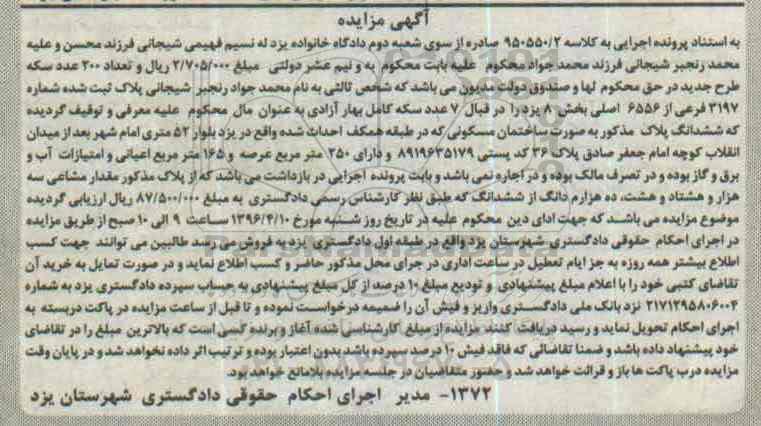 آگهی مزایده
به استناد پرونده اجرایی به کلاسه ۹۵۰۵۵۰/۲ صادره از سوی شعبه دوم دادگاه خانواده یزد له نسیم فهیمی شیجانی فرزند محسن و علیه
محمد رنجبر شیجانی فرزند محمد جواد محکوم علیه بابت محکوم به و نیم عشر دولتی مبلغ ۲/۷۰۵/۰۰۰ ریال و تعداد ۲۰۰ عدد سکه
طرح جدید در حق محکوم لها و صندوق دولت مدیون می باشد که شخص ثالثی به نام محمد جواد رنجبر شیجانی پلاک ثبت شده شماره
۳۱۹۷ فرعی از ۶۵۵۶ اصلی بخش ۸ یزد را در قبال ۷ عدد سکه کامل بهار آزادی به عنوان مال محکوم علیه معرفی و توقیف گردیده
که ششدانگ پلاک مذکور به صورت ساختمان مسکونی که در طبقه همکف احداث شده واقع در یزد بلوار ۵۲ متری امام شهر بعد از میدان
انقلاب کوچه امام جعفر صادق پلاک ۳۶ کد پستی ۸۹۱۹۶۳۵۱۷۹ و دارای ۲۵۰ متر مربع عرصه و ۱۶۵ متر مربع اعیانی و امتیازات آب و
برق و گاز بوده و در تصرف مالک بوده و در اجاره نمی باشد و بابت پرونده اجرایی در بازداشت می باشد که از پلاک مذکور مقدار مشاعی سه
هزار و هشتاد و هشت، ده هزارم دانگ از ششدانگ که طبق نظر کارشناس رسمی دادگستری به مبلغ ۸۷/۵۰۰/۰۰۰ ریال ارزیابی گردیده
موضوع مزایده می باشد که جهت ادای دین محکوم علیه در تاریخ روز شنبه مورخ ۱۳۹۶/۴/۱۰ ساعت ۹ الی ۱۰ صبح از طریق مزایده
در اجرای احکام حقوقی دادگستری شهرستان یزد واقع در طبقه اول دادگستری یزد به فروش می رسد طالبین می توانند جهت کسب
اطلاع بیشتر همه روزه به جز ایام تعطیل در ساعت اداری در اجرای محل مذکور حاضر و کسب اطلاع نماید و در صورت تمایل به خرید آن
تقاضای کتبی خود را با اعلام مبلغ پیشنهادی و تودیع مبلغ ۱۰ درصد از کل مبلغ پیشنهادی به حساب سپرده دادگستری یزد به شماره
۲۱۷۱۲۹۵۸۰۶۰۰۴ نزد بانک ملی دادگستری واریز و فیش آن را ضمیمه درخواست نموده و تا قبل از ساعت مزایده در پاکت دربسته به
اجرای احکام تحویل نماید و رسید دریافت کنند مزایده از مبلغ کارشناسی شده آغاز و برنده کسی است که بالاترین مبلغ را در تقاضای
خود پیشنهاد داده باشد و ضمنا تقاضائی که فاقد فیش ۱۰ درصد سپرده باشد بدون اعتبار بوده و ترتیب اثر داده نخواهد شد و در پایان وقت
مزایده درب پاکت ها باز و قرائت خواهد شد و حضور متقاضیان در جلسه مزایده بلامانع خواهد بود.
۱۳۷۲- مدیر اجرای احکام حقوقی دادگستری شهرستان یزد